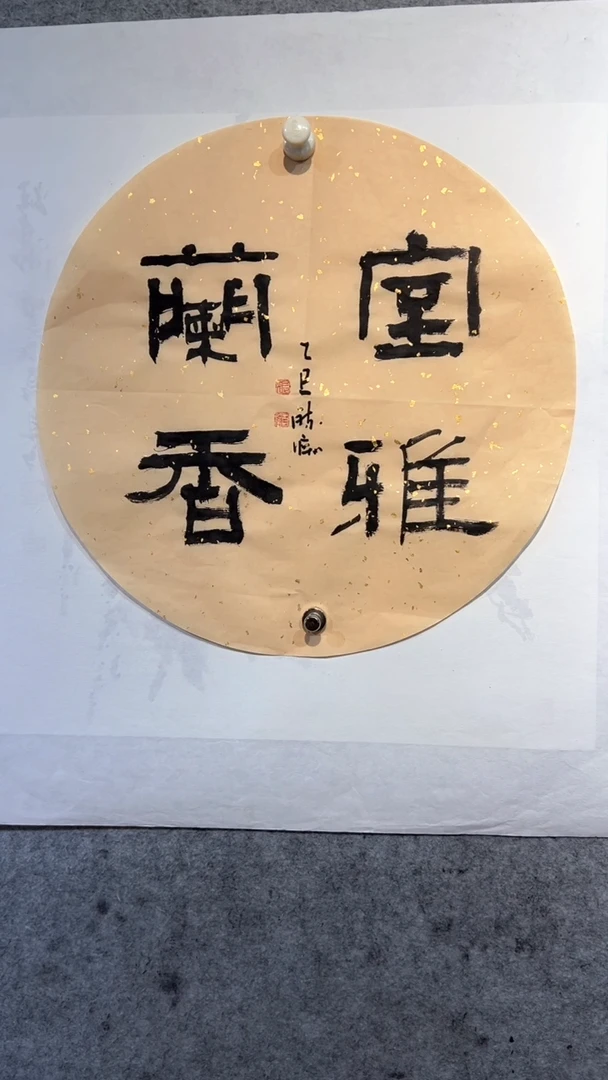 室雅
蘭香
乙巳